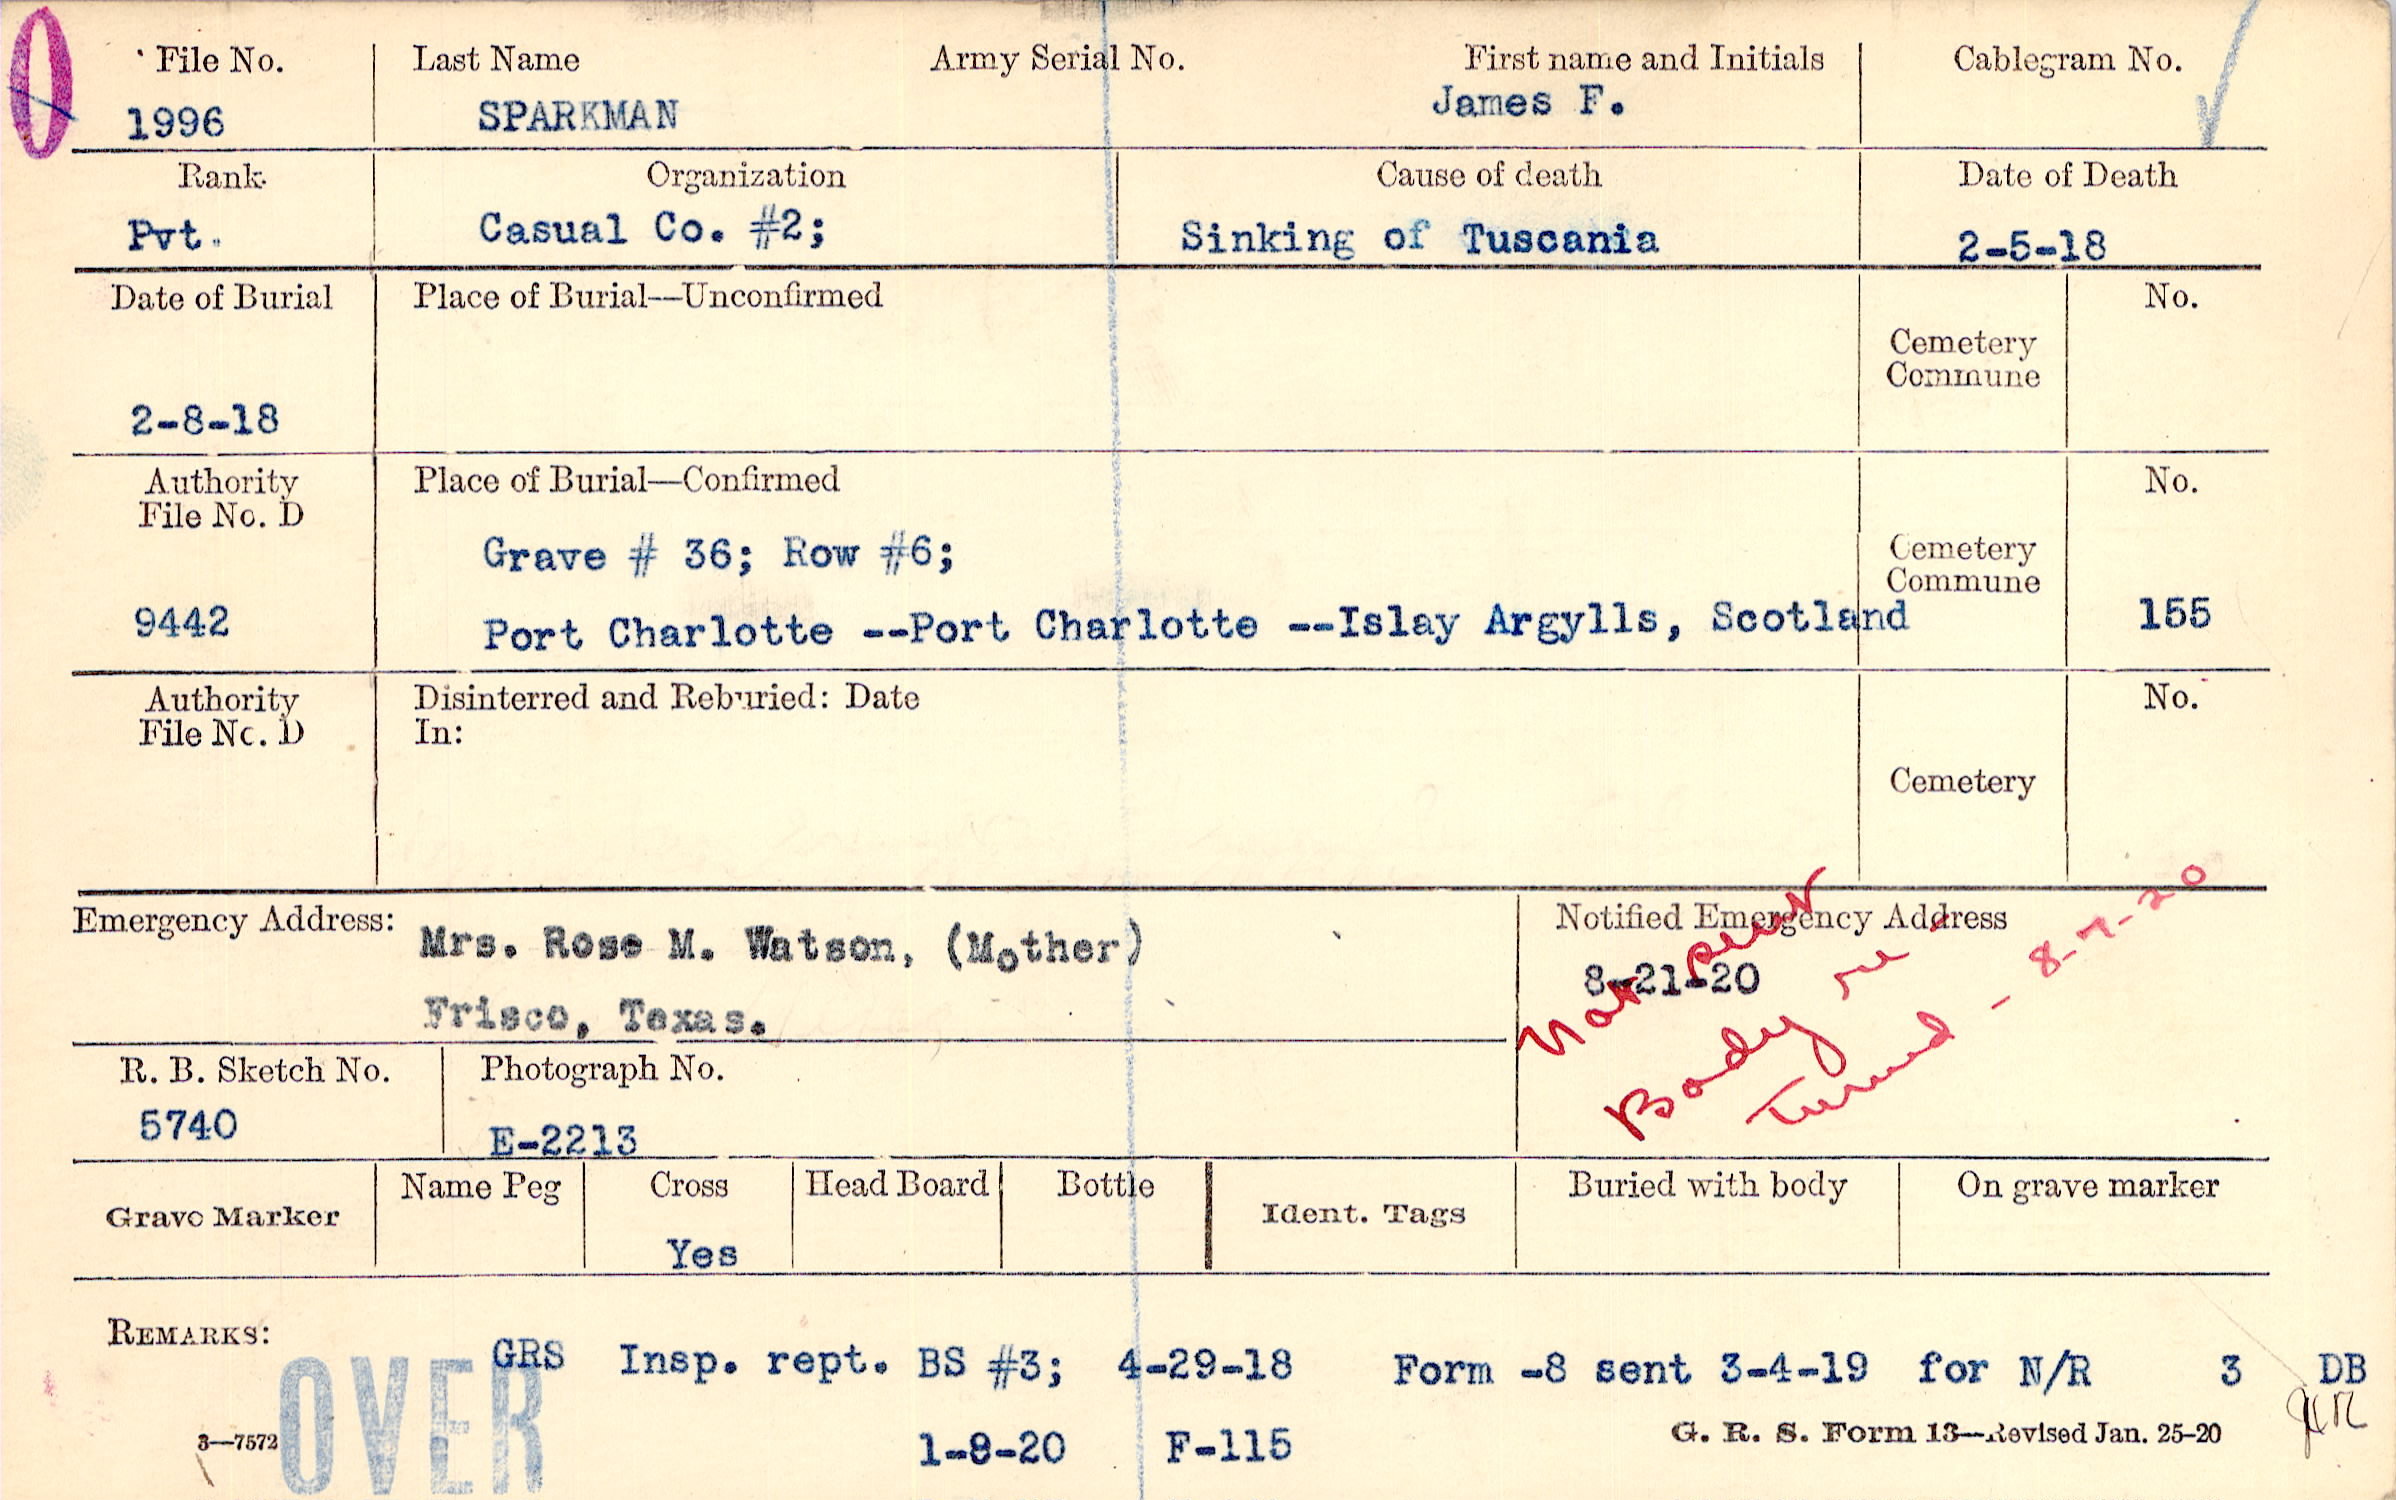 File No. Last Name Army Serial No. First name and Initials Cablegram No.
1996 SPARKMAN James F.
Rank Organization Cause of death Date of Death
Pvt. Casual Co. #2; Sinking of Tuscania 2-5-18
Date of Burial Place of Burial—Unconfirmed No.
Cemetery
Commune
2-8-18
Authority Place of Burial—Confirmed No.
File No. D
Grave # 36; Row #6; Cemetery
Commune
9442 Port Charlotte --Port Charlotte --Islay Argylls, Scotland 155
Authority Disinterred and Reburied: Date No.
File No. D In:
Cemetery
Emergency Address: Mrs. Rose M. Watson, (Mother) Notified Emergency Address
8-21-20
Frisco, Texas.
Body re-
turned - 8-7-20
R. B. Sketch No. Photograph No.
5740 E-2213
Grave Marker Name Peg Cross Head Board Bottle Ident. Tags Buried with body On grave marker
Yes
REMARKS: GRS Insp. rept. BS #3; 4-29-18 Form -8 sent 3-4-19 for N/R 3 DB
OVER
3—7572 1-8-20 F-115 G. R. S. Form 13—Revised Jan. 25-20